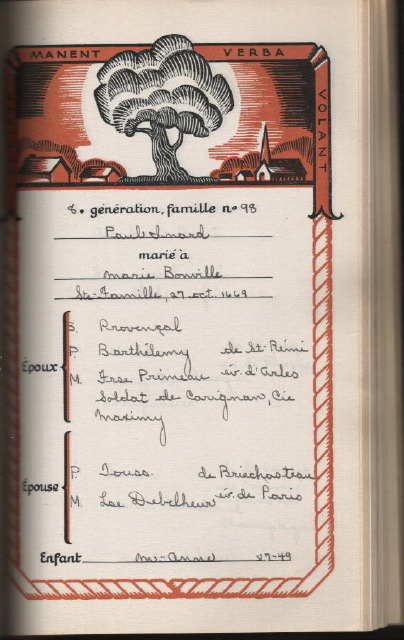 MANENT VERBA VOLANT
8e génération, famille no 98
Paul Inard
marié à
Marie Bonville
Ste-Famille, 27 oct. 1669
Époux
S. Provençal
P. Barthélemy de St-Rémi
M. Frse Primeau év. d'Arles
Soldat de Carignan, Cie
Maximy
Épouse
P. Touss. de
M. Lse év. de Paris
Enfant M-Anne 87-49